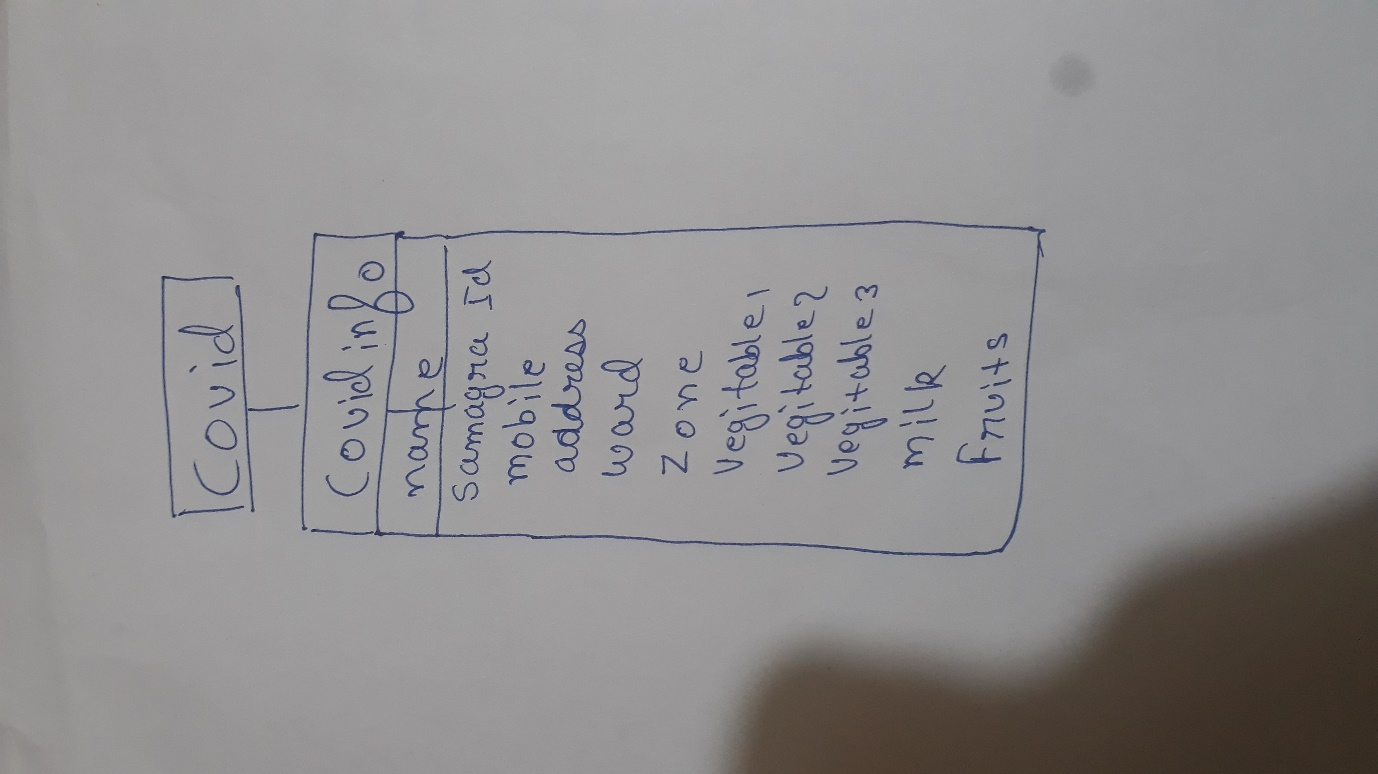 Covid
Covid info
name
Samagra Id
mobile
address
ward
Zone
Vegitable1
Vegitable2
Vegitable3
milk
fruits